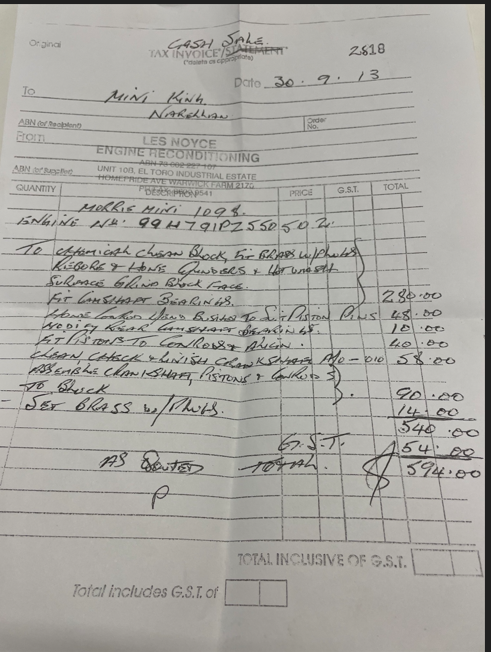 Original
CASH SALE.
TAX INVOICE/STATEMENT
(*delete as appropriate)
2818
Date 30.9.13
To MINI KING
NARELLAN
ABN (of Recipient)
Order No.
From
LES NOYCE
ENGINE RECONDITIONING
ABN (of Supplier)
UNIT 10B, EL TORO INDUSTRIAL ESTATE
HOMEPRIDE AVE WARWICK FARM 2170
QUANTITY DESCRIPTION PRICE G.S.T. TOTAL
MORRIS MINI 1098.
ENGINE No: 99H791P255050.2.
TO CHEMICAL CLEAN BLOCK, FIT BRASS W/PLUGS
REBORE & HONE CYLINDERS & HOT WASH
SURFACE GRIND BLOCK FACE.
FIT CAMSHAFT BEARINGS. 280.00
HONE CONROD BUSHES TO SUIT PISTON PINS 48.00
MODIFY REAR CAMSHAFT BEARING. 10.00
FIT PISTONS TO CONRODS & ALIGN. 40.00
CLEAN, CHECK & LINISH CRANKSHAFT 010-010 58.00
ASSEMBLE CRANKSHAFT, PISTONS & CONRODS
TO BLOCK 90.00
- SET BRASS W/PLUGS. 14.00
540.00
G.S.T. 54.00
AS QUOTED TOTAL. $594.00
P
TOTAL INCLUSIVE OF G.S.T.
Total includes G.S.T of